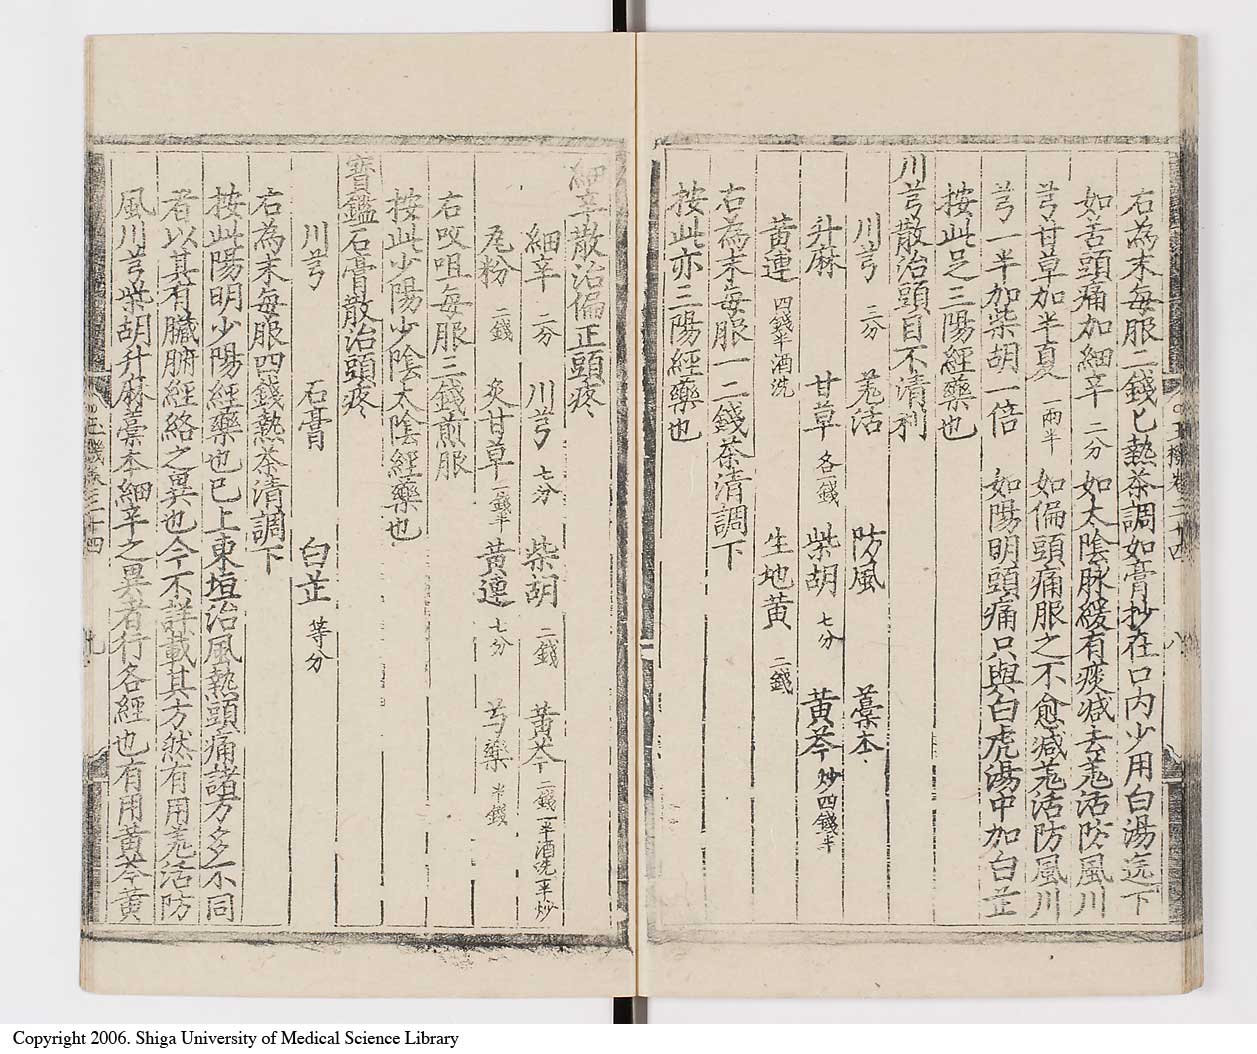 右為末每服二錢匕熱茶調如膏抄在口内少用白湯送下
如苦頭痛加細辛二分 如太陰脉緩有痰減去羌活防風川
芎甘草加半夏一兩半 如偏頭痛服之不愈減羌活防風川
芎一半加柴胡一倍 如陽明頭痛只與白虎湯中加白芷
按此足三陽經藥也
川芎散治頭目不清利
川芎三分 羌活 防風 藁本
升麻 甘草各一錢 柴胡七分 黃芩炒四錢半
黃連四錢半酒洗 生地黃二錢
右為末每服一二錢茶清調下
按此亦三陽經藥也
玉機卷三十四 八
細辛散治偏正頭疼
細辛二分 川芎七分 柴胡二錢 黃芩二錢一半酒洗一半炒
瓦粉二錢 炙甘草一錢半 黃連七分 芍藥半錢
右㕮咀每服三錢煎服
按此少陽少陰太陰經藥也
寶鑑石膏散治頭疼
川芎 石膏 白芷等分
右為末每服四錢熱茶清調下
按此陽明少陽經藥也已上東垣治風熱頭痛諸方多不同
者以其有臟腑經絡之異也今不詳載其方然有用羌活防
風川芎柴胡升麻藁本細辛之異者行各經也有用黃芩黃
玉機卷三十四 九
Copyright 2006. Shiga University of Medical Science Library